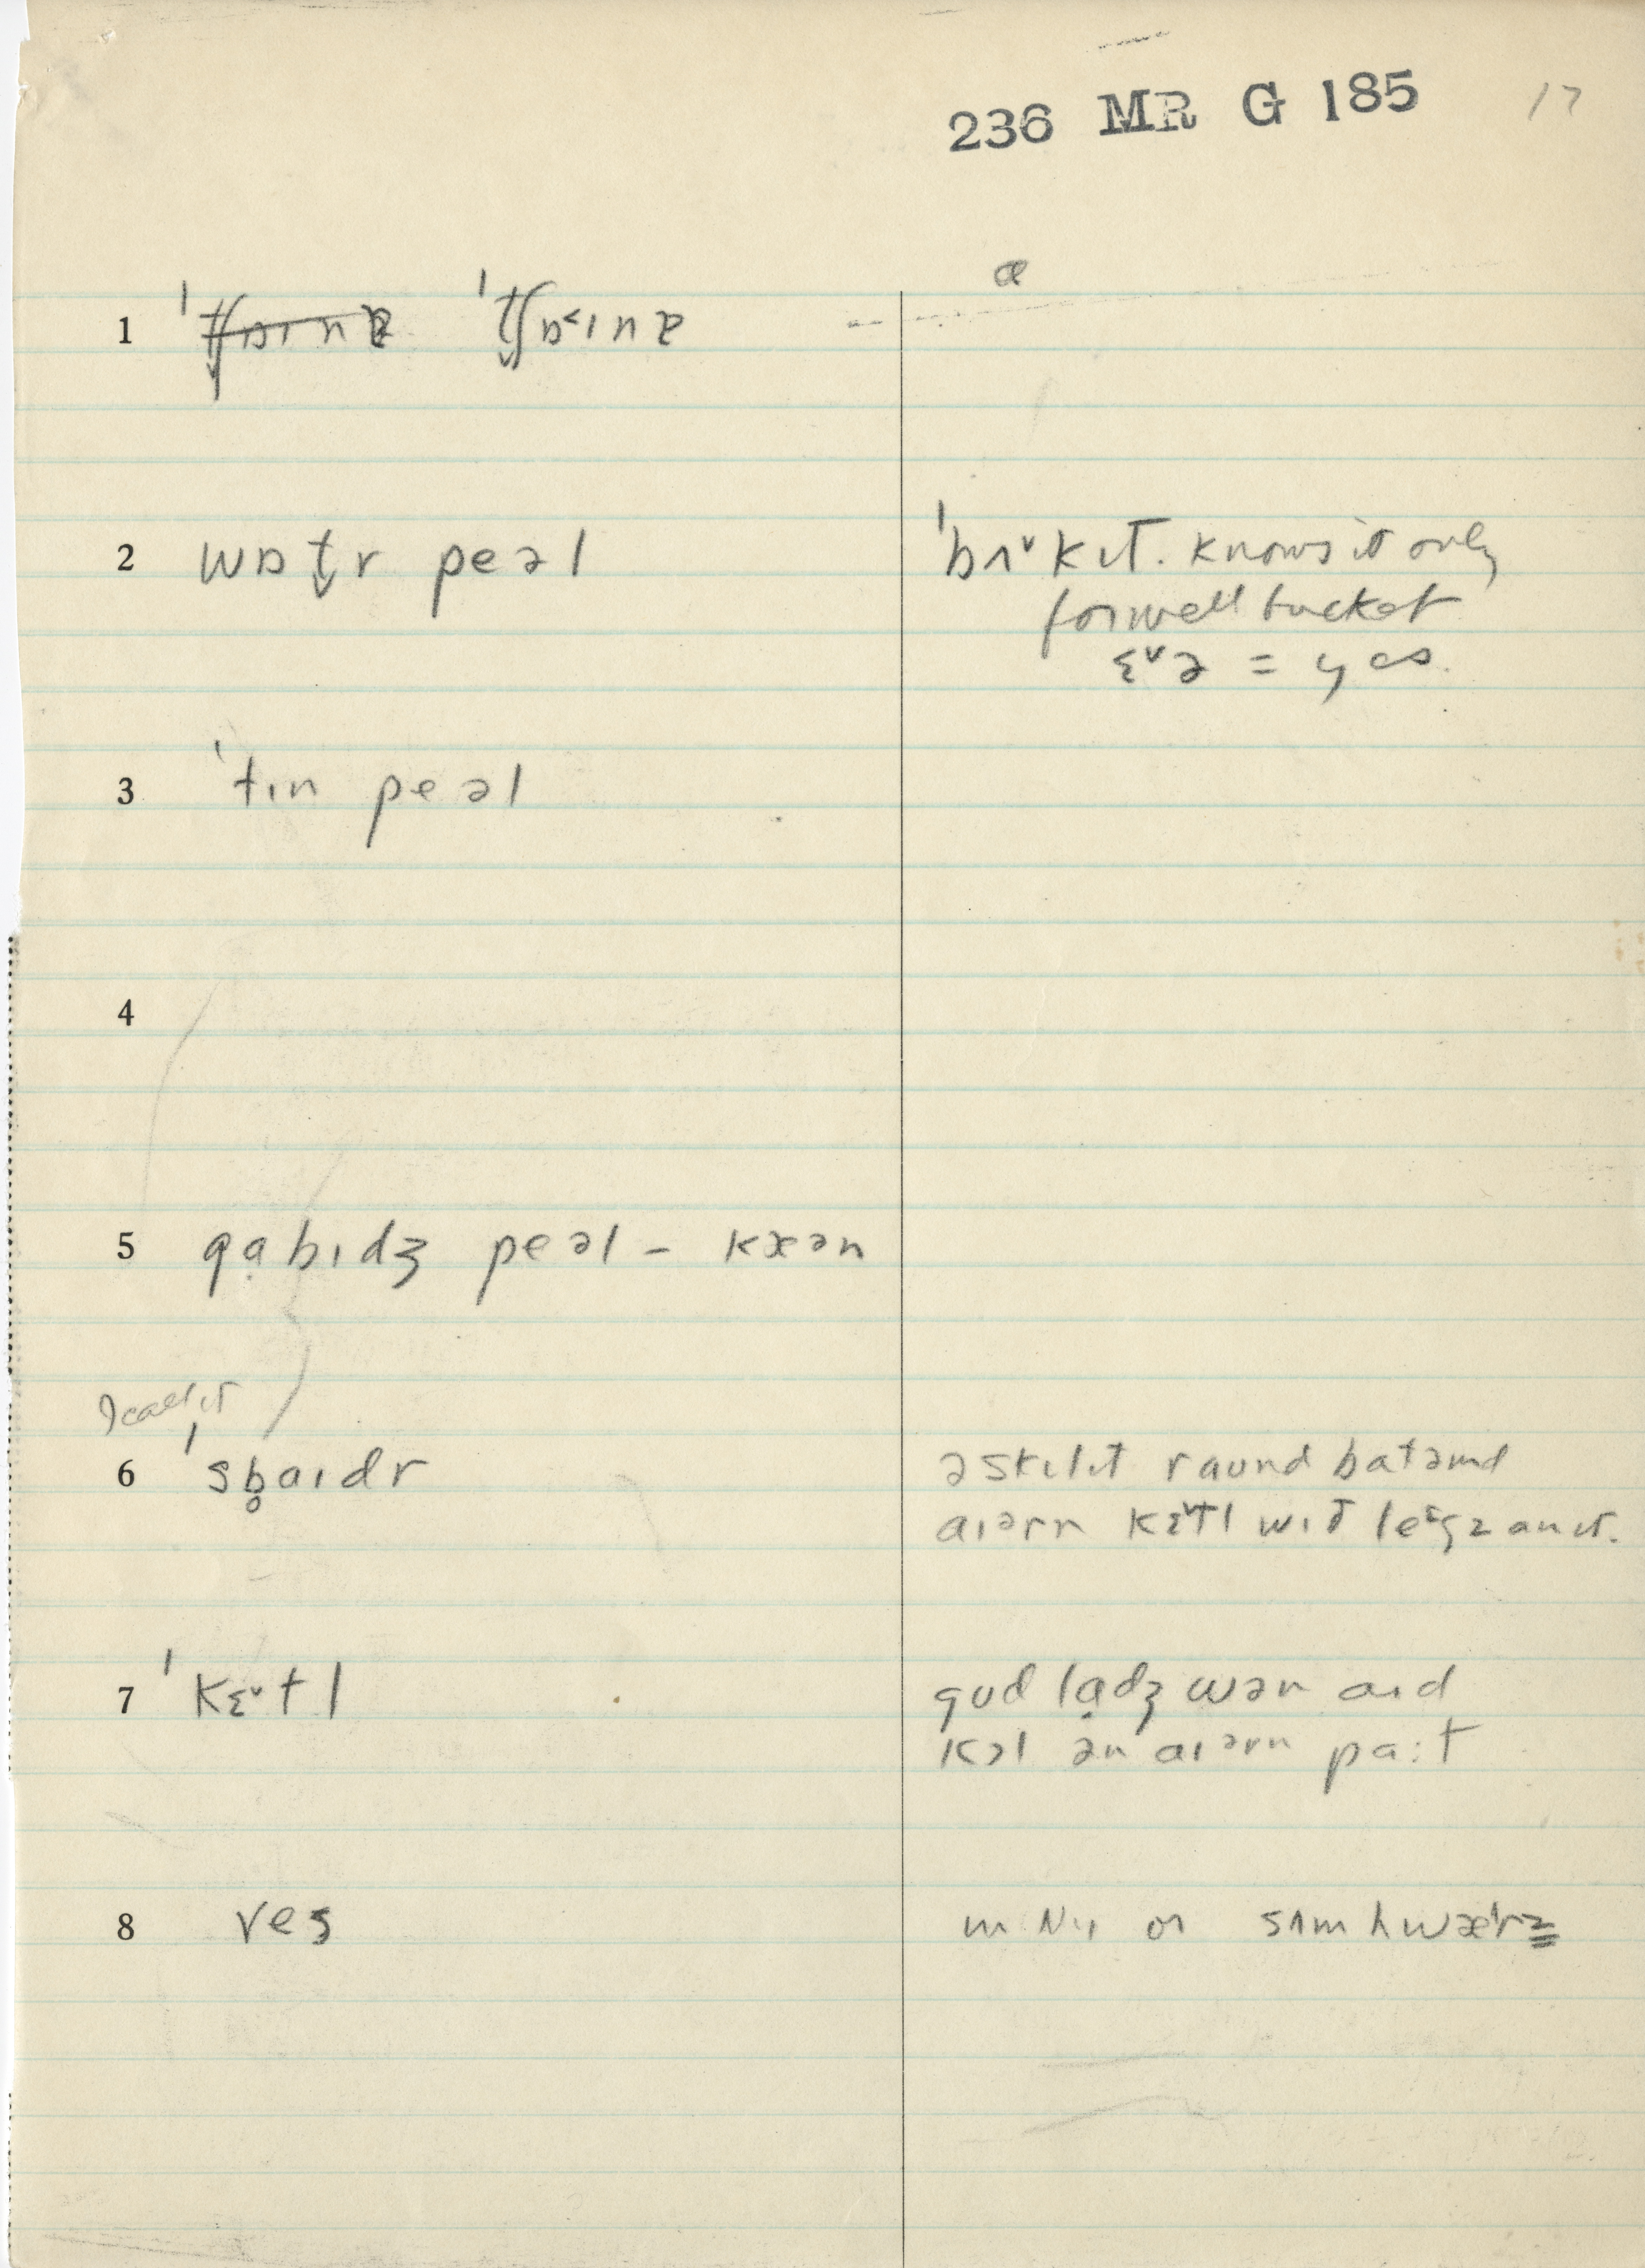 236 MR G 185 17
ɑ
1 ˈtʃɒɪnɐ ˈtʃɒ˂ɪnɐ
2 wɒt̬r peəl ˈbʌ˅kɪt. knows it only
for well bucket
ɛ˅ə = yes.
3 ˈtɪn peəl
4
5 gạbɪdʒ peəl – kxən
I call it
6 ˈsb̥aɪdr əskɪlɪt raund batəmd
aɪərn kɛ˅tl wɪt legz an ɪt.
7 ˈkɛ˅tl gud lạdʒ wən aɪd
kɔl ən aɪərn pa:t
8 ves or sʌmhwæˈrz